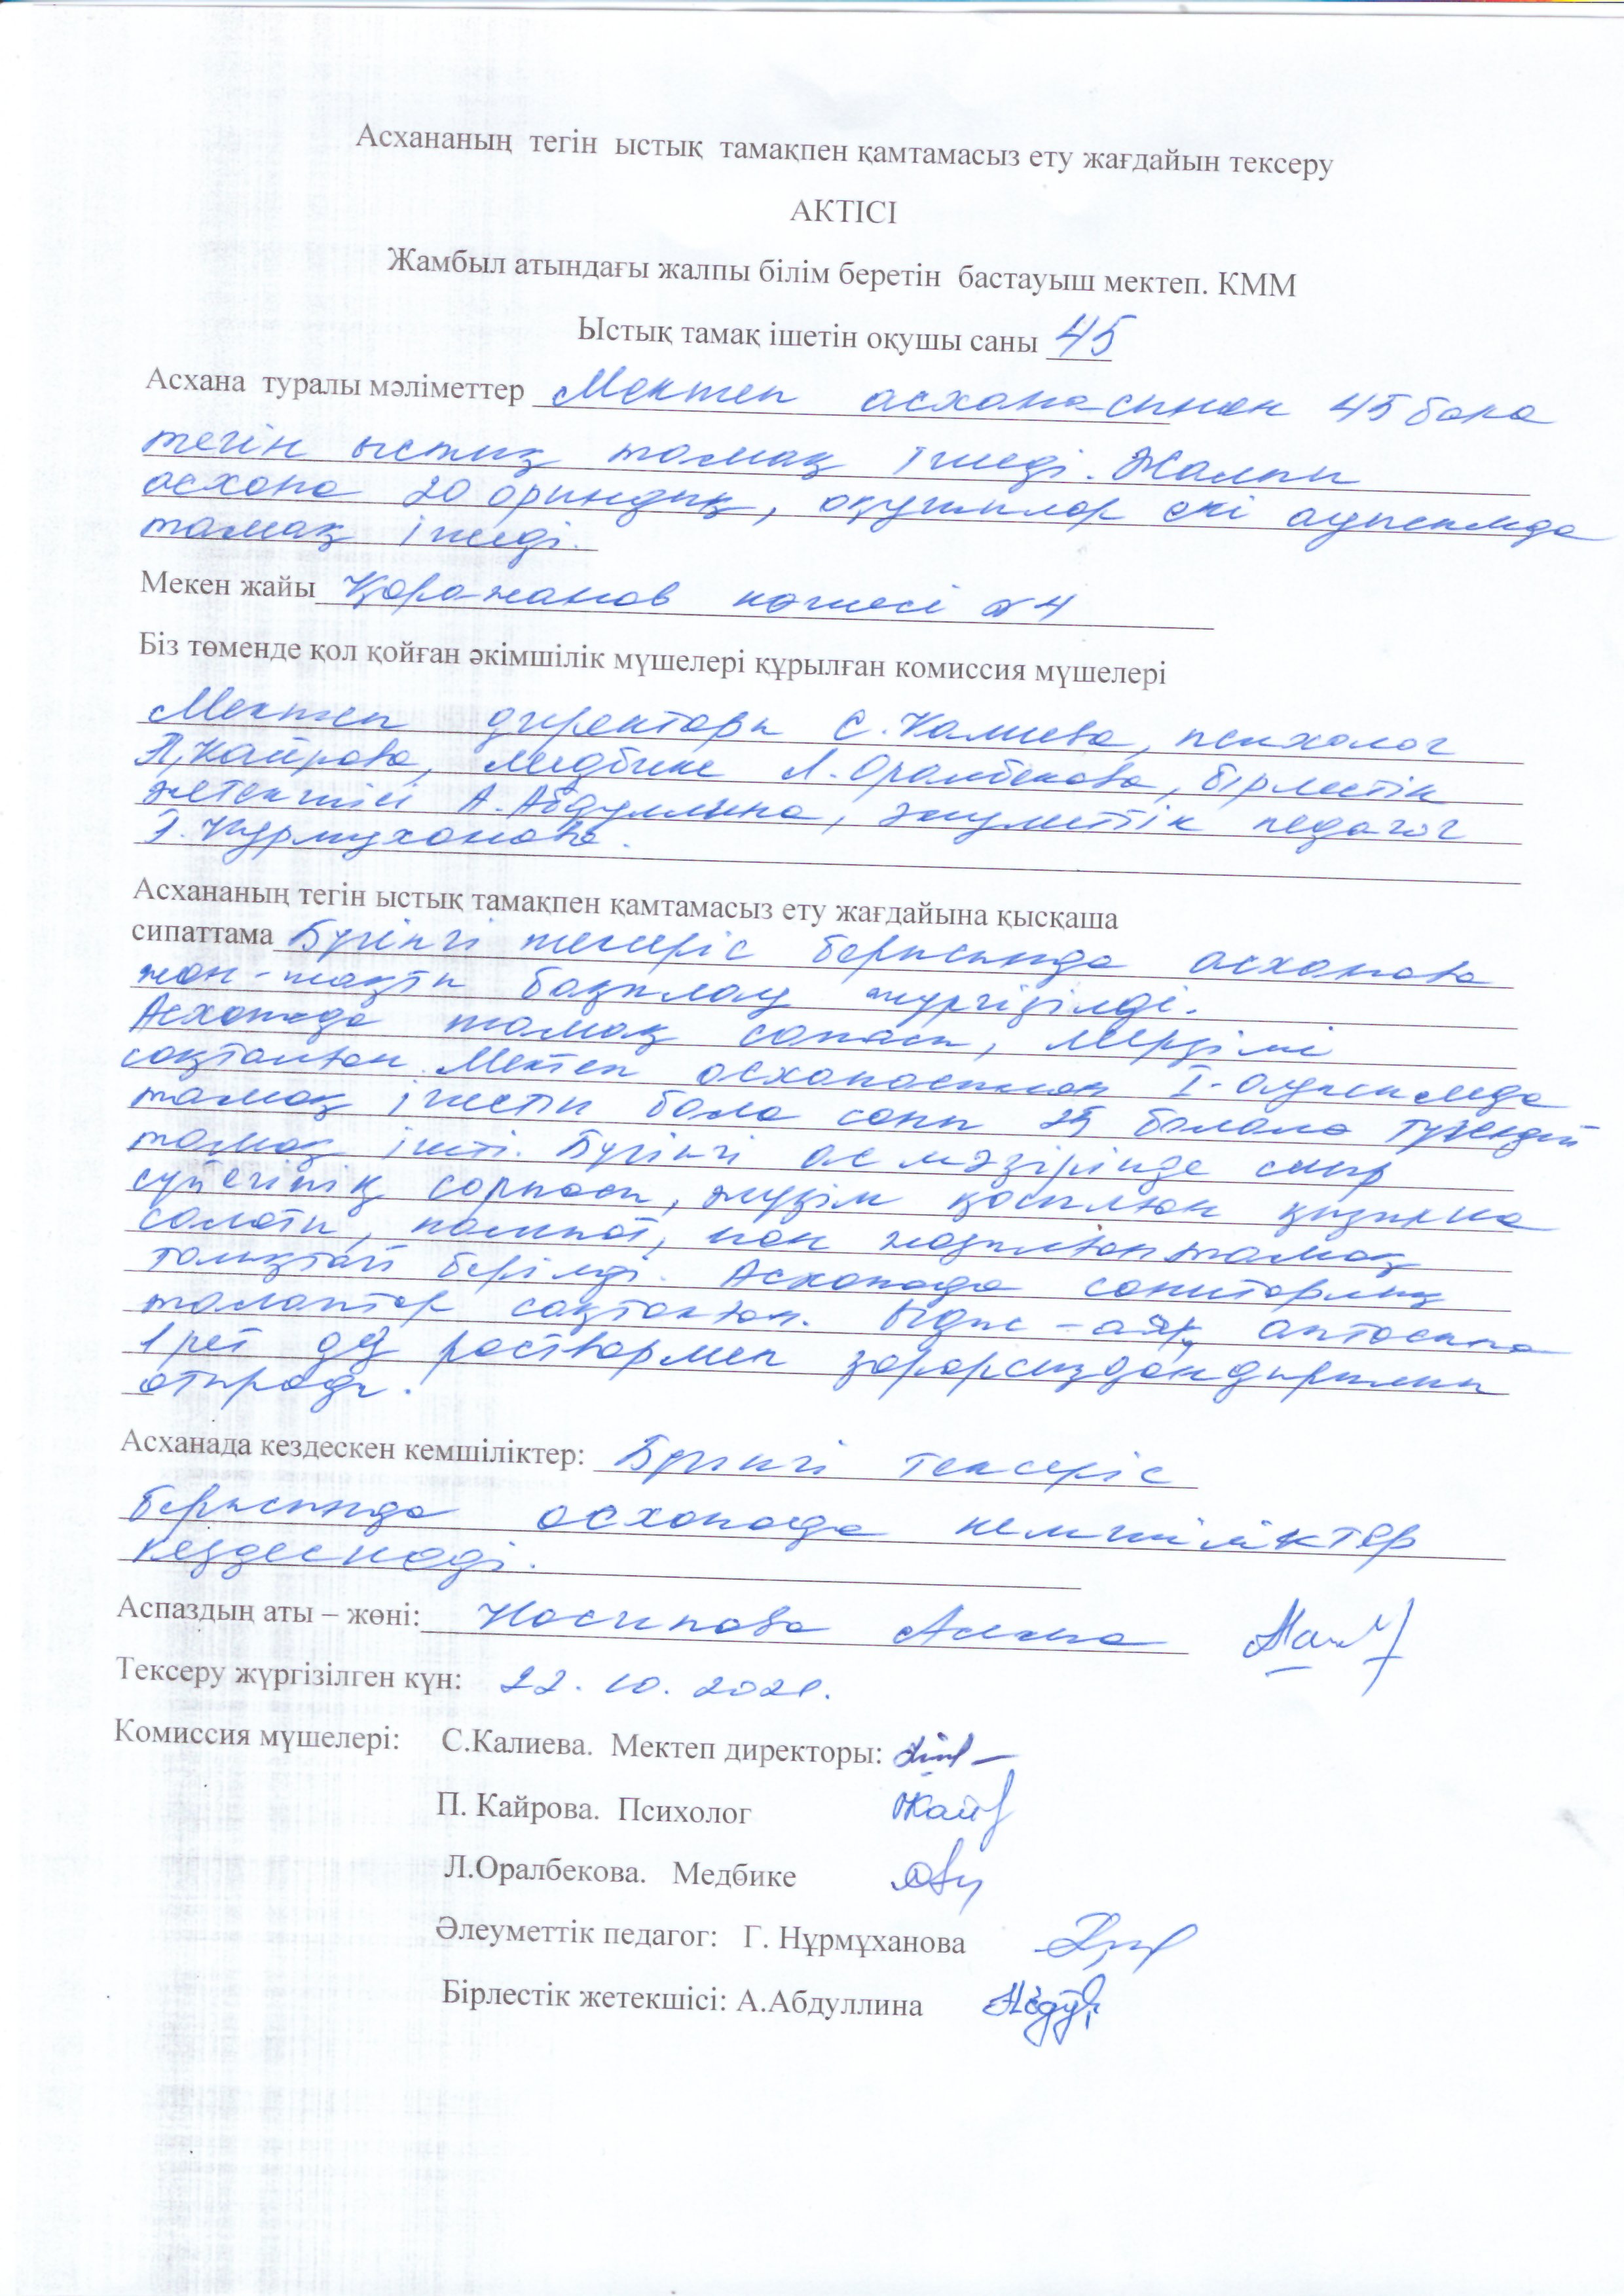 Асхананың тегін ыстық тамақпен қамтамасыз ету жағдайын тексеру
АКТІСІ
Жамбыл атындағы жалпы білім беретін бастауыш мектеп. КММ
Ыстық тамақ ішетін оқушы саны 45
Асхана туралы мәліметтер Мектеп асханасынан 45 бала
тегін ыстық тамақ ішеді. Жалпы
асхана 20 орындық, оқушылар екі ауысымда
тамақ ішеді.
Мекен жайы Қаражанов көшесі 4
Біз төменде қол қойған әкімшілік мүшелері құрылған комиссия мүшелері
Мектеп директоры С.Калиева, психолог
П.Кайрова, медбике Л.Оралбекова, бірлестік
жетекшісі А.Абдуллина, әлеуметтік педагог
Г.Нурмуханова.
Асхананың тегін ыстық тамақпен қамтамасыз ету жағдайына қысқаша
сипаттама Бүгінгі тексеріс барысында асханаға
жан-жақты бақылау жүргізілді.
Асханада тамақ сапасы, мерзімі
сақталған. Мектеп асханасынан I-ауысымда
тамақ ішетін бала саны 25 балаға
тамақ ішті. Бүгінгі ас мәзірінде сиыр
сорпасы, жүзім қосылған қызылша
салаты, компот, нан жазылған тамақ
толықтай берілді. Асханада санитарлық
талаптар сақталған. Ыдыс-аяқ аптасына
1 рет дез раствормен зарарсыздандырылып
отырады.
Асханада кездескен кемшіліктер: Бүгінгі тексеріс
барысында асханада кемшіліктер
кездеспеді.
Аспаздың аты – жөні: Насипова
Тексеру жүргізілген күн: 22.10.2021.
Комиссия мүшелері: С.Калиева. Мектеп директоры:
П. Кайрова. Психолог
Л.Оралбекова. Медбике
Әлеуметтік педагог: Г. Нұрмұханова
Бірлестік жетекшісі: А.Абдуллина